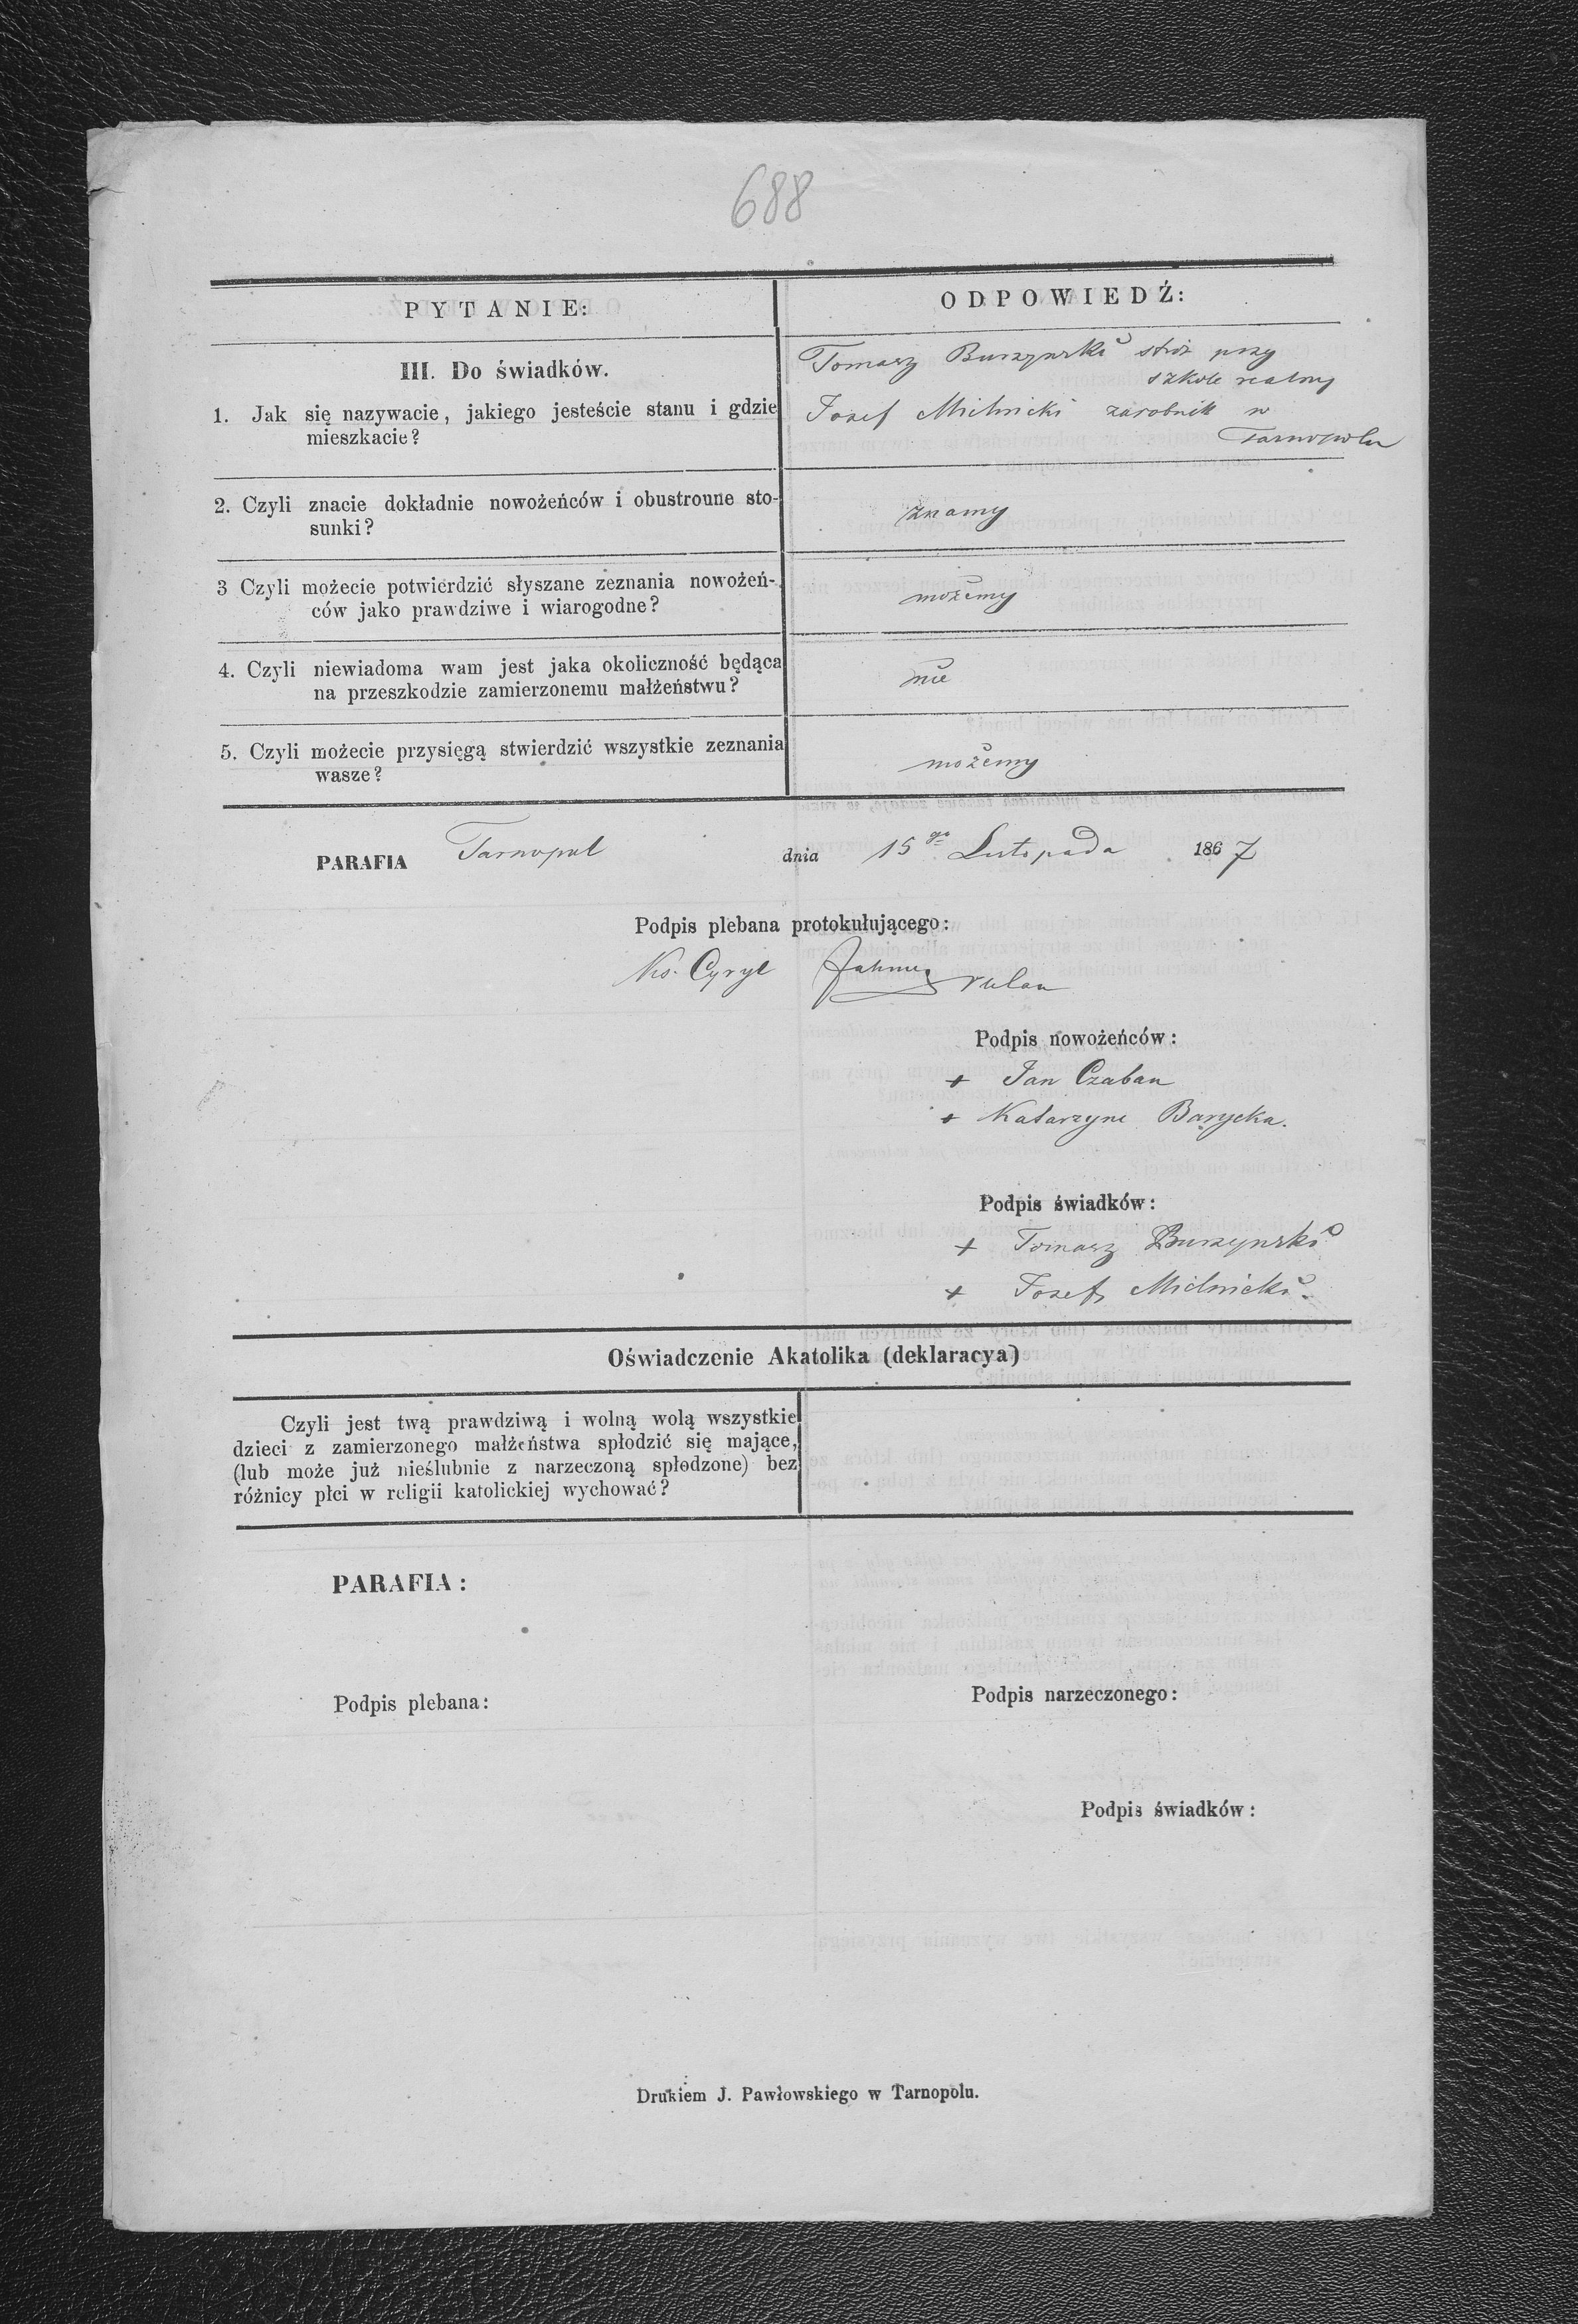 688
PYTANIE:
ODPOWIEDŹ:
III. Do świadków.
1. Jak się nazywacie, jakiego jesteście stanu i gdzie
mieszkacie?
Tomasz Burzynski stróż przy
szkole realny
Josef Mielnicki zarobnik w
Tarnopolu
2. Czyli znacie dokładnie nowożeńców i obustroune sto-
sunki?
znamy
3 Czyli możecie potwierdzić słyszane zeznania nowożeń-
ców jako prawdziwe i wiarogodne?
możemy
4. Czyli niewiadoma wam jest jaka okoliczność będąca
na przeszkodzie zamierzonemu małżeństwu?
nie
5. Czyli możecie przysięgą stwierdzić wszystkie zeznania
wasze?
możemy
PARAFIA Tarnopol dnia 15go Listopada 1867
Podpis plebana protokułującego:
Ks. Cyryl
Podpis nowożeńców:
+ Jan Czaban
+ Katarzyne Barycka.
Podpis świadków:
+ Tomasz Burzynski
+ Josef Mielnicki.
Oświadczenie Akatolika (deklaracya)
Czyli jest twą prawdziwą i wolną wolą wszystkie
dzieci z zamierzonego małżeństwa spłodzić się mające,
(lub może już nieślubnie z narzeczoną spłodzone) bez
różnicy płci w religii katolickiej wychować?
PARAFIA:
Podpis plebana:
Podpis narzeczonego:
Podpis świadków:
Drukiem J. Pawłowskiego w Tarnopolu.